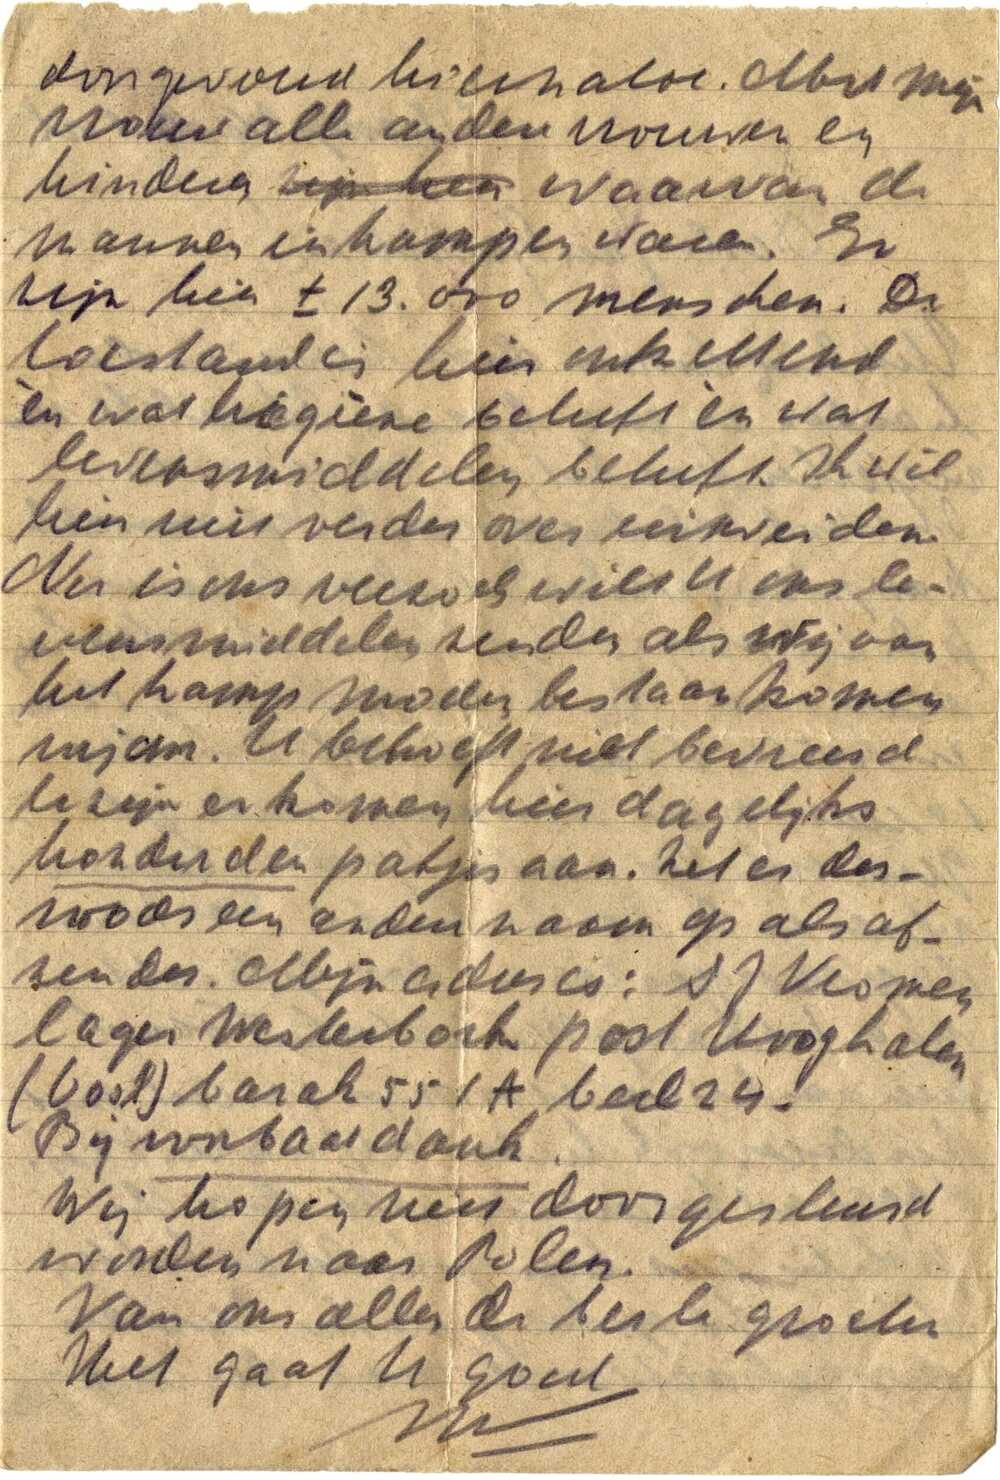 doorgevoerd hiernatoe. Met mijn
vrouw alle andere vrouwen en
kinderen waarvan de
mannen in kampen waren. Er
zijn hier ± 13.000 menschen. De
toestand is hier ontzettend
èn wat hiegiene betreft èn wat
levensmiddelen betreft. Ik wil
hier niet verder over uitweiden.
Nu is ons verzoek wilt U ons le-
vensmiddelen zenden als wij van
het kamp moeten bestaan komen
wij om. U behoeft niet bevreesd
te zijn er komen hier dagelijks
honderden pakjes aan. Zet er des-
noods een andere naam op als af-
zender. Mijn adres is: S J Vromen
lager Westerbork post Hooghalen
(oost) barak 55 1A bed 24.
Bij voorbaat dank.
Wij hopen niet doorgestuurd
worden naar Polen.
Van ons allen de beste groeten
Het gaat U goed